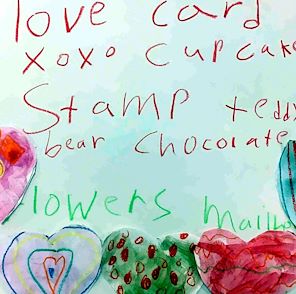 love card
xoxo cupcake
Stamp teddy
bear chocolate
lowers mail